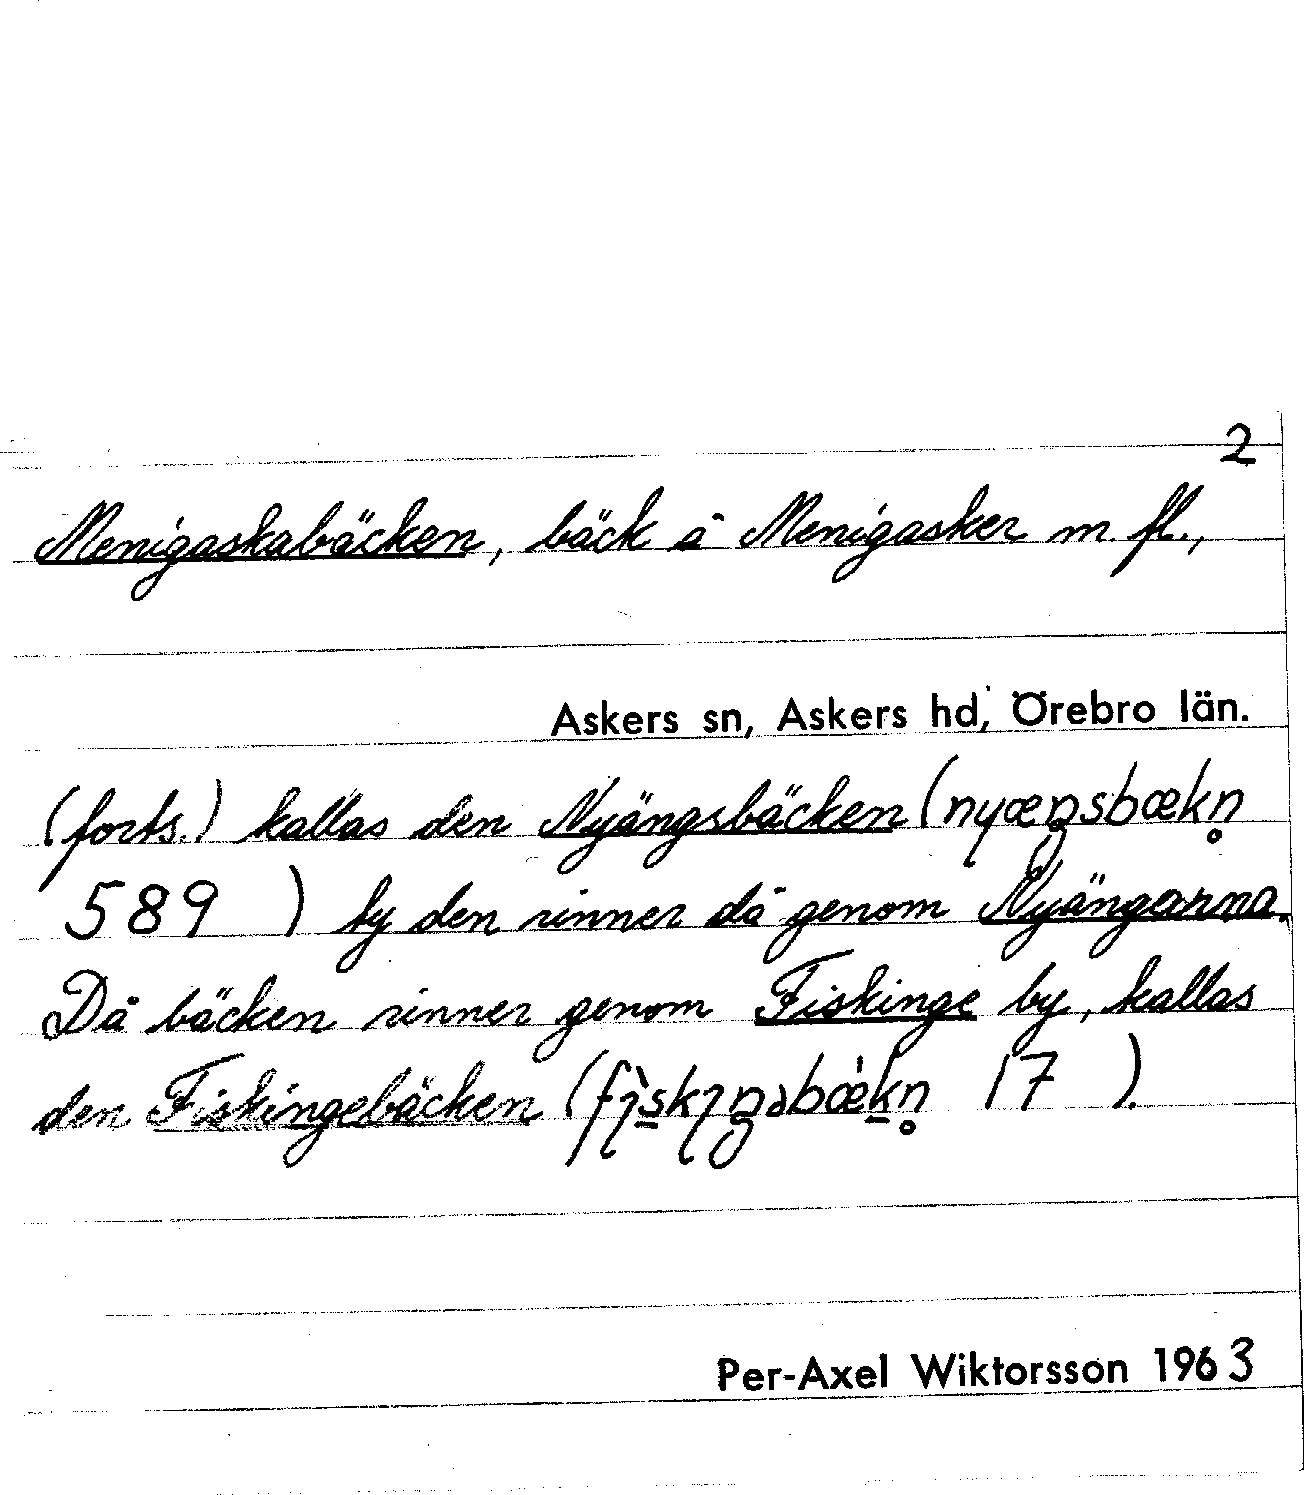 2
Menigaskabäcken, bäck å Menigasker m. fl.,
Askers sn, Askers hd, Örebro län.
(forts.) kallas den Nyängsbäcken (nyæŋsbækn̥
589 ) ty den rinner då genom Nyängarna.
Då bäcken rinner genom Fiskinge by, kallas
den Fiskingebäcken (fɪ̀skɪŋəbæ̀kn̥ 17 ).
Per-Axel Wiktorsson 1963